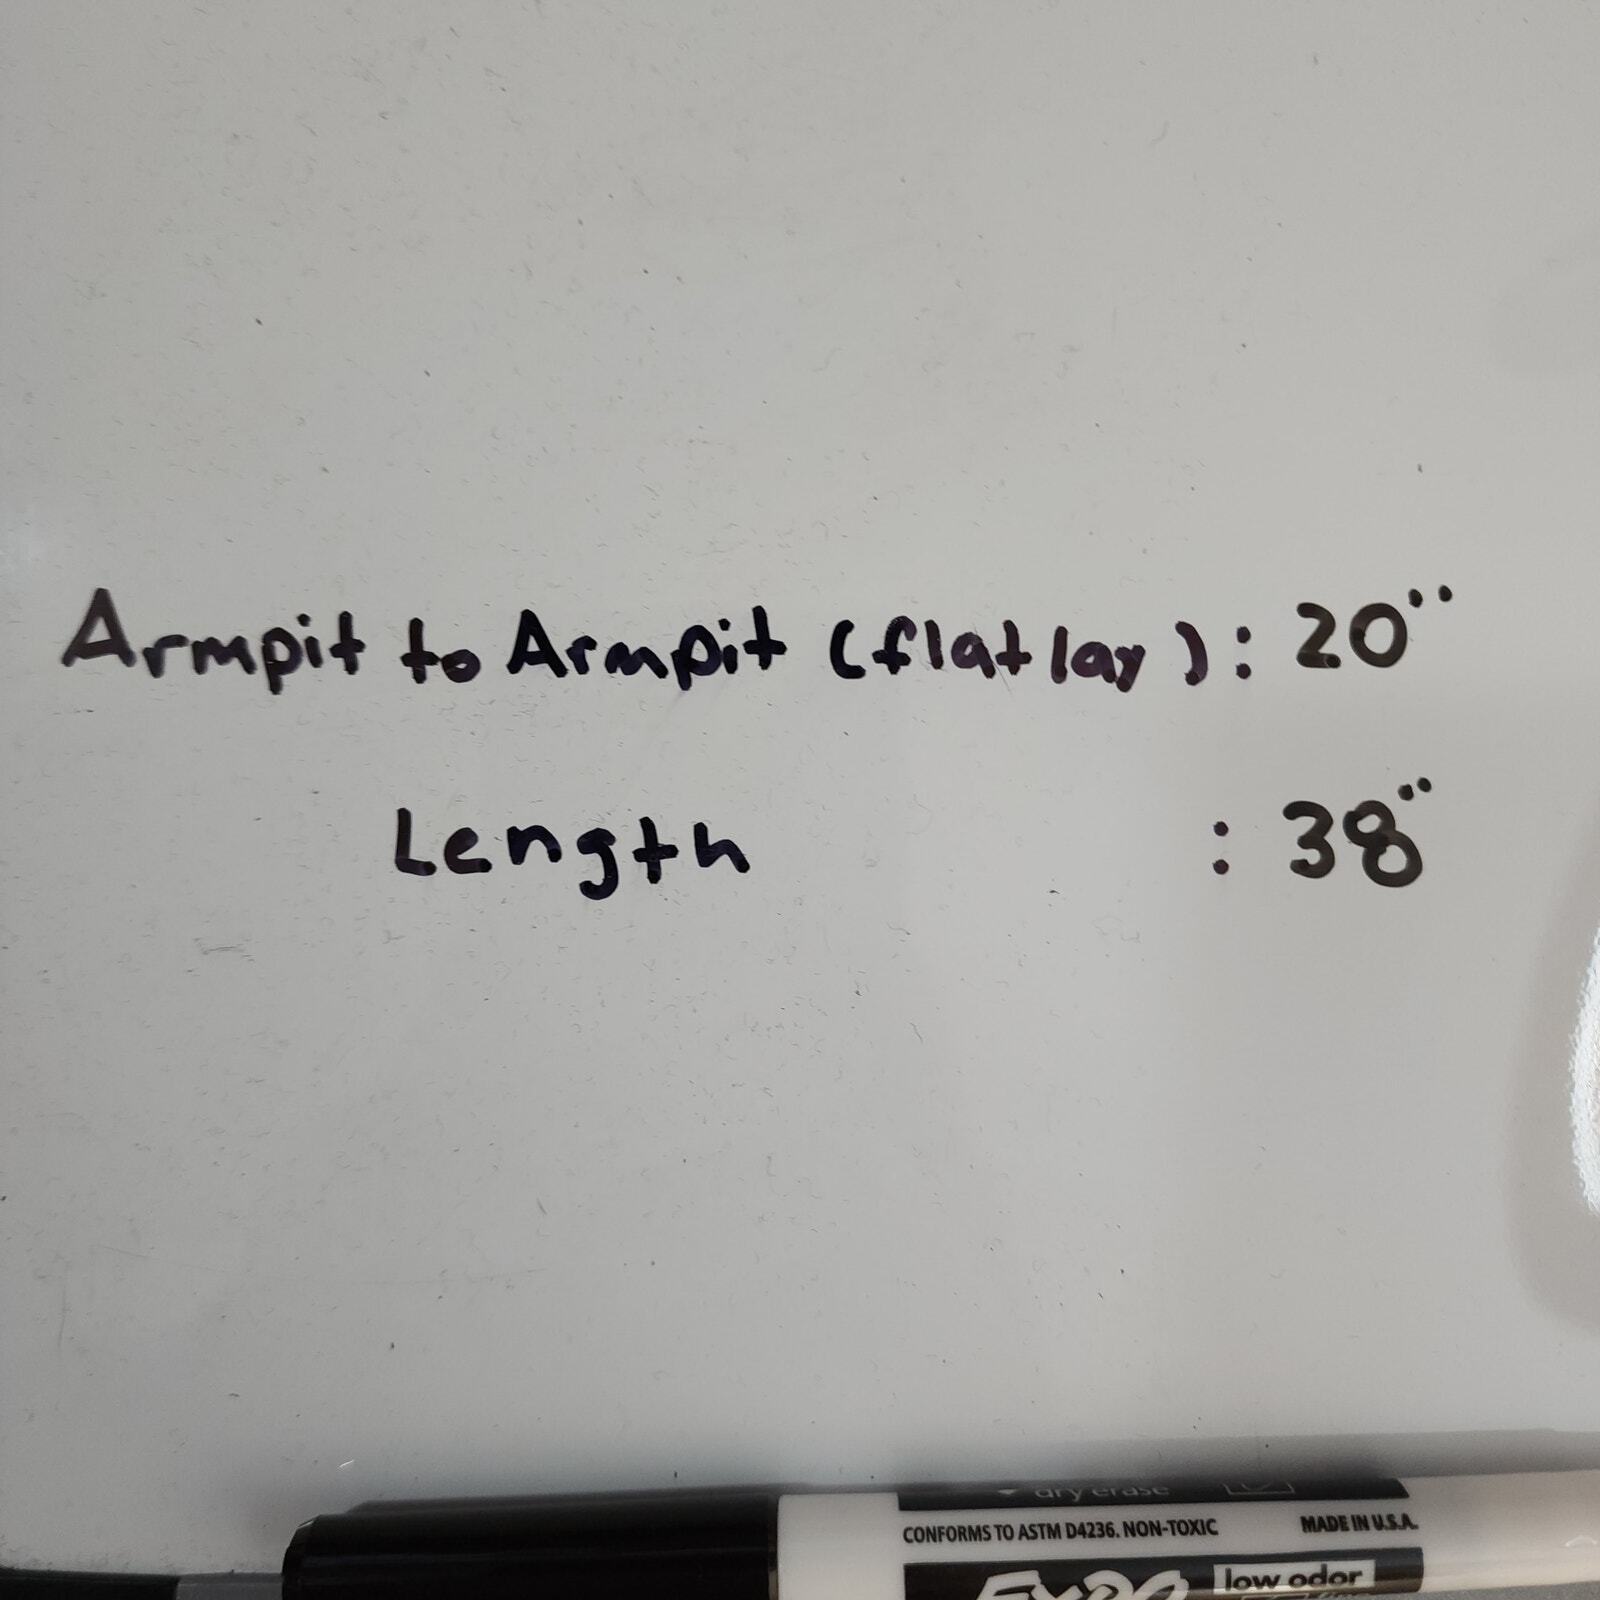 Armpit to Armpit (flat lay) : 20"
Length : 38"
dry erase
CONFORMS TO ASTM D4236. NON-TOXIC MADE IN U.S.A.
EXPO low odor